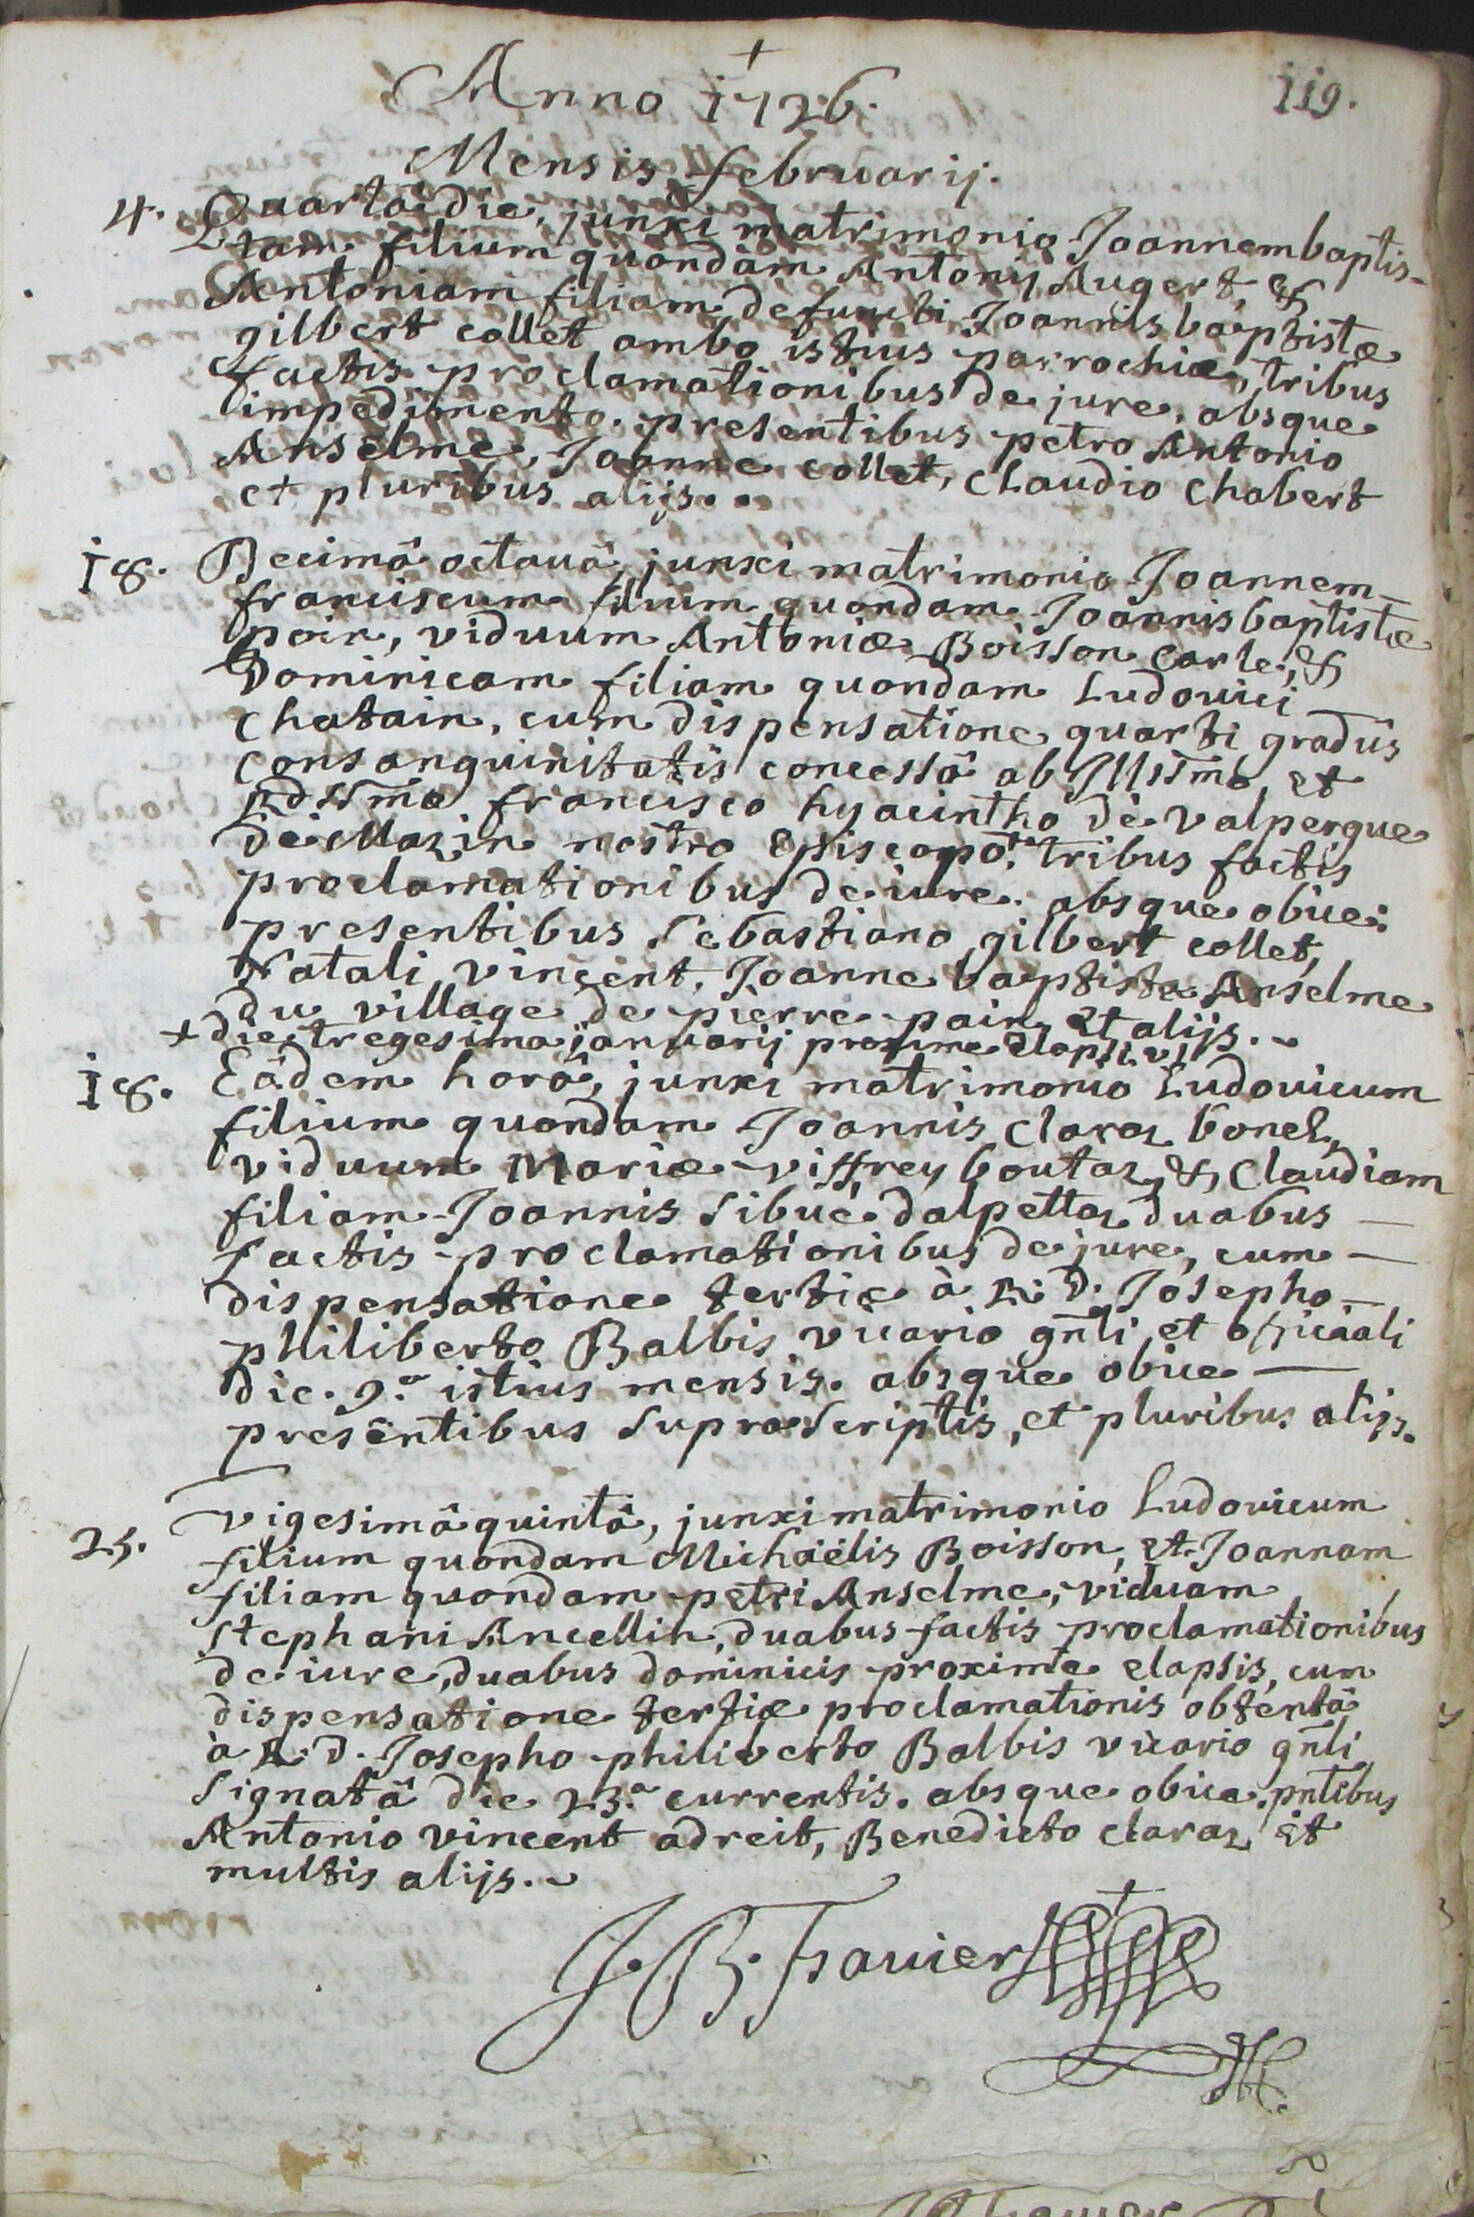 +
Anno 1726. 119.
Mensis februarij.
4. Quartâ die, junxi matrimonio Joannembaptis-
tam filium quondàm Antonij Augert, &
Antoniam filiam defuncti Joannis baptistæ
gilbert collet ambo istius parrochiæ, tribus
factis proclamationibus de jure, absque
impedimento. presentibus petro Antonio
Anselme, Joanne collet, Claudio Chabert
et pluribus alijs.
18. Decimâ octauâ, junxi matrimonio Joannem-
franciscum filium quondam Joannisbaptistæ
pain, viduum Antoniæ Boisson carle, &
Dominicam filiam quondam Ludovici
Chatain, cum dispensatione quarti gradûs
consanguinitatis concessâ ab Jllssmo et
Rdssmo francisco hyacintho de valpergue
de Mazin nostro Episcopo.+ tribus factis
proclamationibus de iure. absque obice:
presentibus Sebastiano gilbert collet,
Natali vincent, Joanne baptista Anselme
du village de pierre pain, Et alijs.
+ die tregesima januarij proxime elapsi.
18. Eâdem horâ, junxi matrimonio Ludovicum
filium quondam Joannis claraz bonel,
viduum Mariæ viffrey boutaz, & Claudiam
filiam Joannis Sibué dalpettaz duabus
factis proclamationibus de jure, cum
dispensatione tertiæ à R. D. Josepho
philiberto Balbis vicario gnli et officiali
die. 9.a istius mensis. absque obice
presentibus supraScriptis, et pluribus alijs.
25. Vigesimâquintâ, junximatrimonio Ludovicum
filium quondam Michaëlis Boisson, et Joannam
filiam quondam petri Anselme, viduam
Stephani Ancellin, duabus factis proclamationibus
de iure, duabus dominicis proxime elapsis, cum
dispensatione tertiæ proclamationis obtentâ
à R. D. Josepho philiberto Balbis vicario gnli
Signatâ die 23.a currentis. absque obice. pntibus
Antonio vincent adreit, Benedicto claraz Et
multis alijs.
J. B. Favier